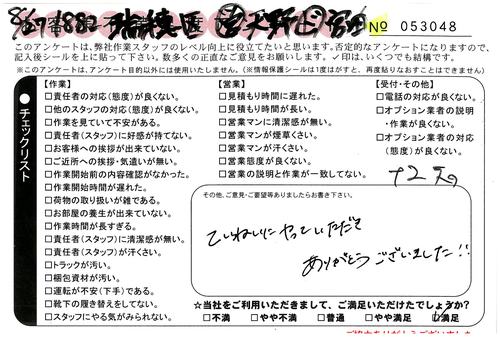 8/27
No 053048
このアンケートは、弊社作業スタッフのレベル向上に役立てたいと思います。否定的なアンケートになりますので、
記入後シールを上に貼って下さい。数多くの正直なご意見をお願いします。✓印は、いくつでも結構です。
※このアンケートは、アンケート目的以外には使用いたしません。(※情報保護シールは1度はがすと、再度貼りなおすことはできません)
チェックリスト
【作業】
□責任者の対応(態度)が良くない。
□他のスタッフの対応(態度)が良くない。
□作業を見ていて不安がある。
□責任者(スタッフ)に好感が持てない。
□お客様への挨拶が出来ていない。
□ご近所への挨拶・気遣いが無い。
□作業開始前の内容確認がなかった。
□作業開始時間が遅れた。
□荷物の取り扱いが雑である。
□お部屋の養生が出来ていない。
□作業時間が長すぎる。
□責任者(スタッフ)に清潔感が無い。
□責任者(スタッフ)が汗くさい。
□トラックが汚い。
□梱包資材が汚い。
□運転が不安(下手)である。
□靴下の履き替えをしてない。
□スタッフにやる気がみられない。
【営業】
□見積もり時間に遅れた。
□見積もり時間が長い。
□営業マンに清潔感が無い。
□営業マンが煙草くさい。
□営業マンが汗くさい。
□営業態度が良くない。
□営業の説明と作業が一致してない。
【受付・その他】
□電話の対応が良くない。
□オプション業者の説明
・作業が良くない。
□オプション業者の対応
(態度)が良くない。
その他、ご意見・ご要望等ありましたらお書き下さい。
ていねいにやっていただき
ありがとうございました!!
☆当社をご利用いただきまして、ご満足いただけたでしょうか?
□不満 □やや不満 □普通 □やや満足 ☑満足